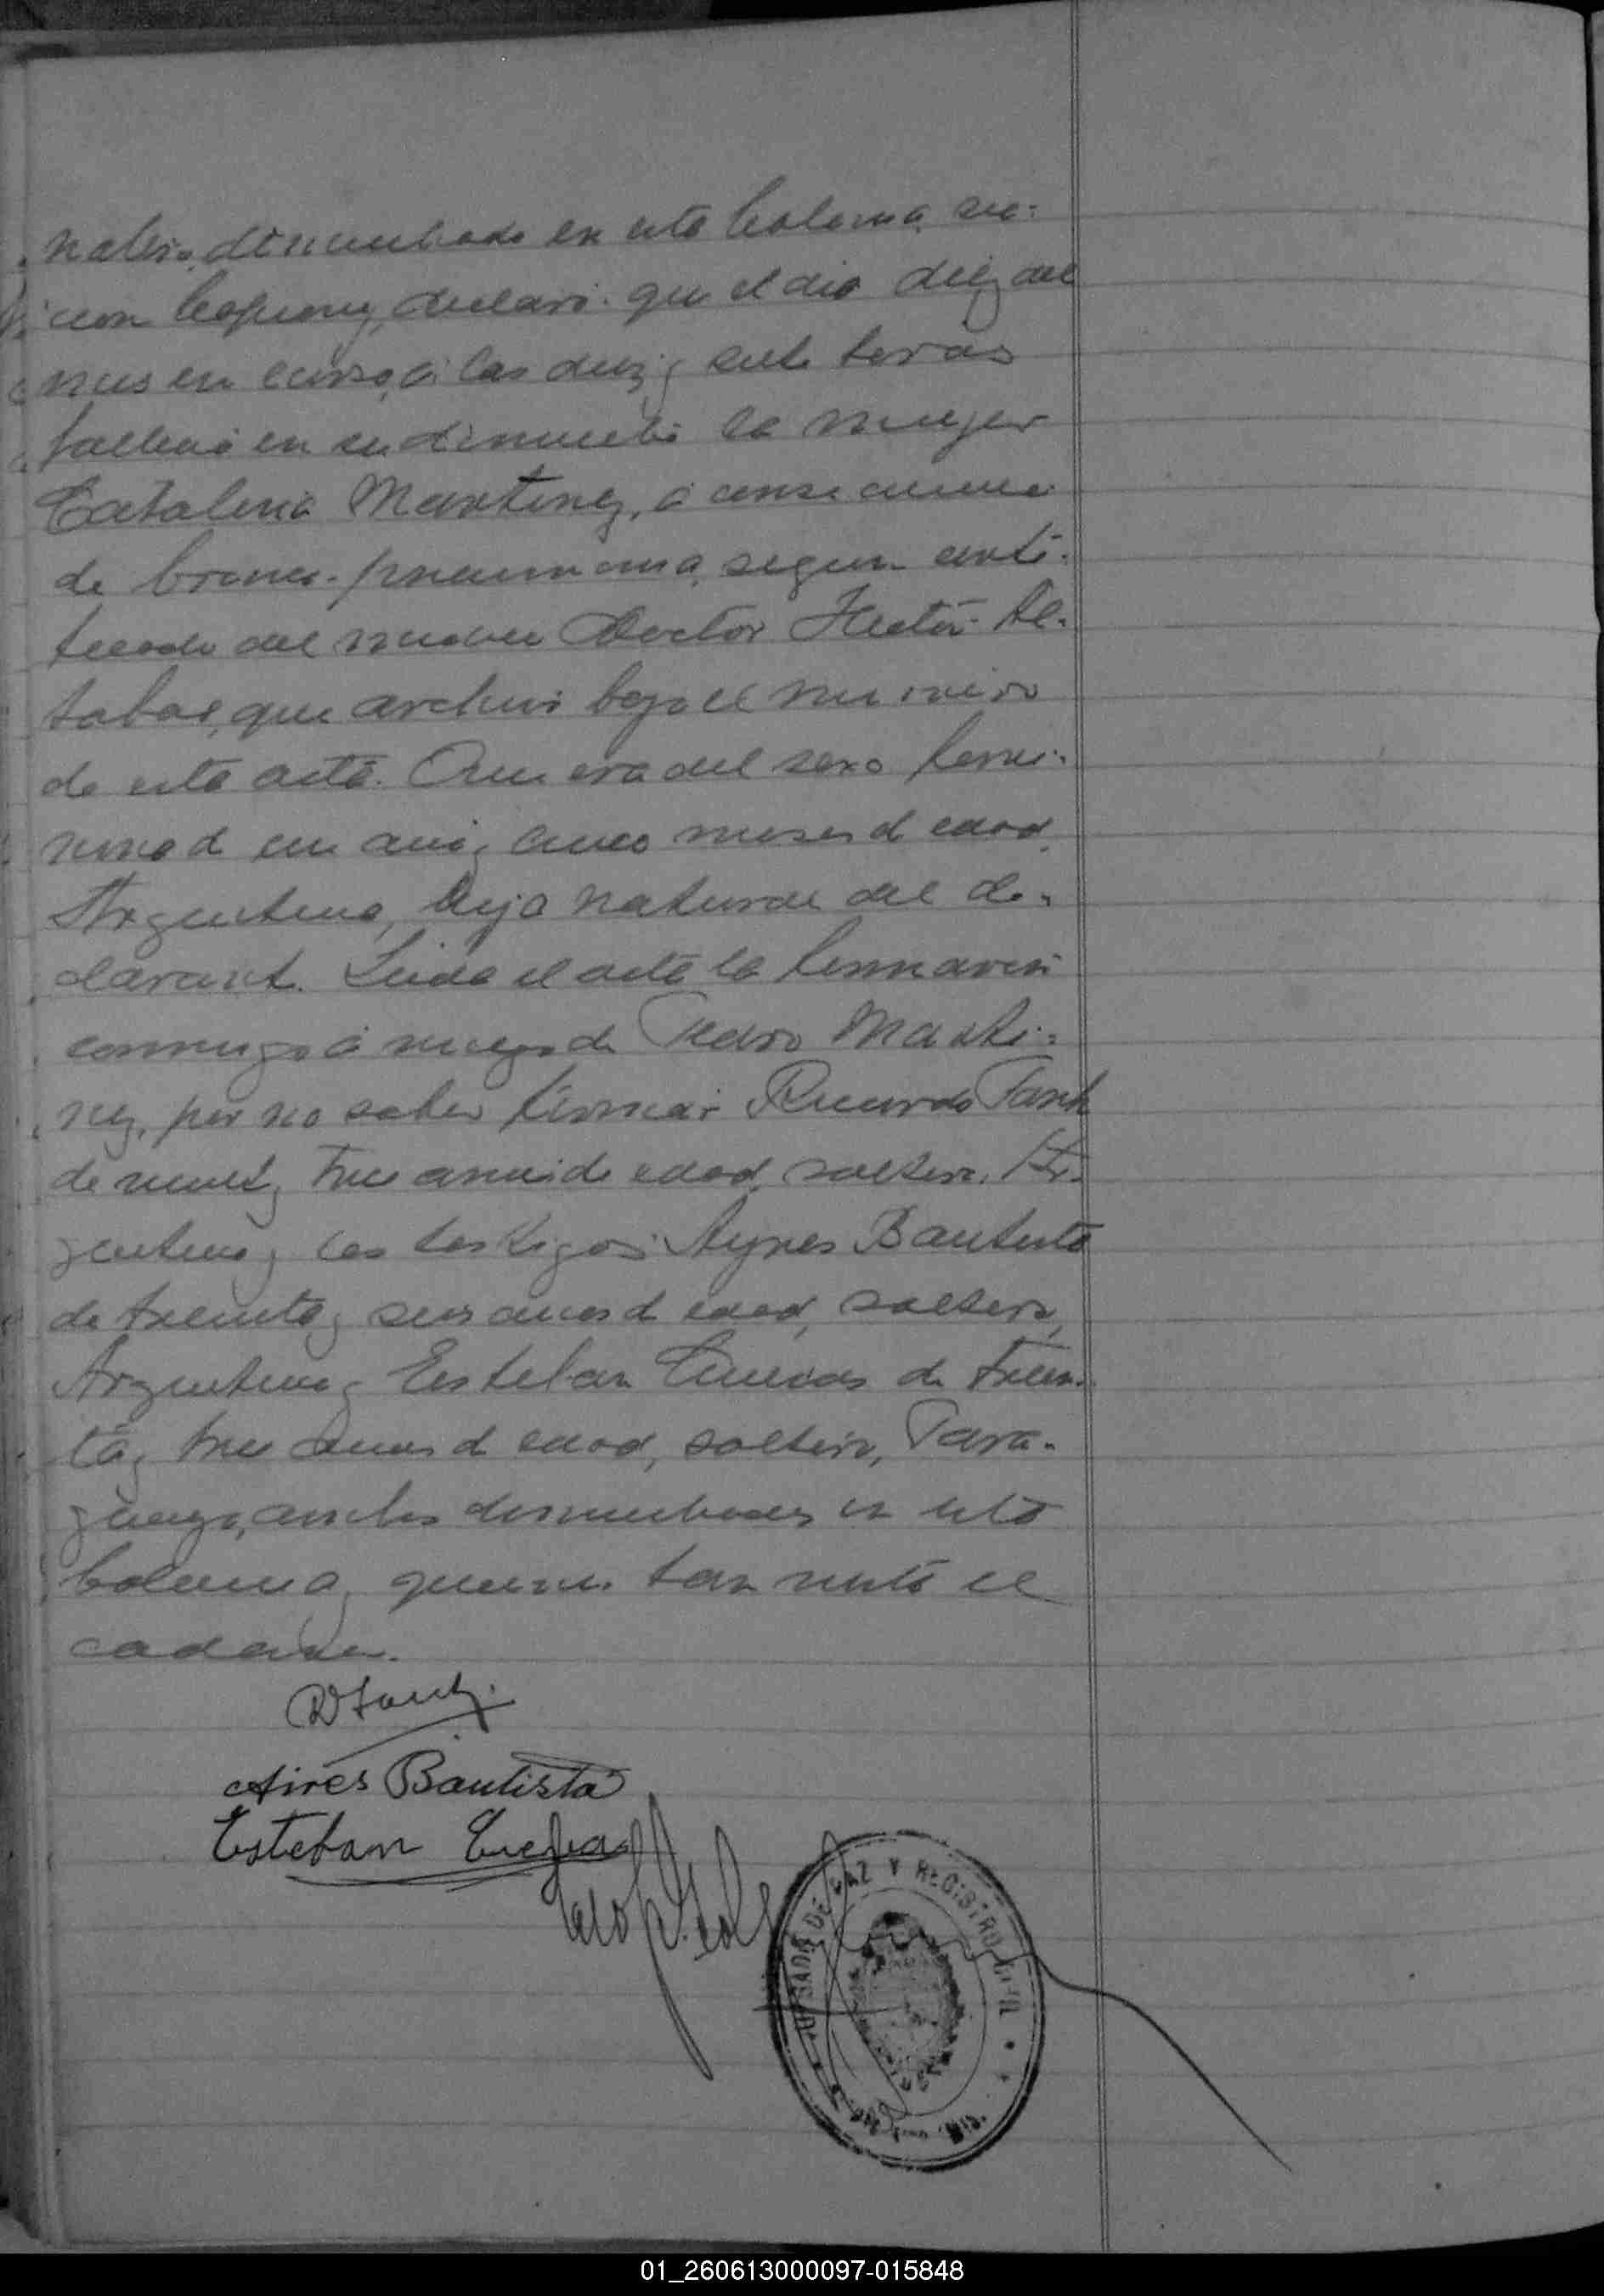 nalero, domiciliado en esta Colonia, sec-
cion Capiovy, declaró: que el dia diez del
mes en curso, á las diez y siete horas
falleció en su domicilio la mujer
Catalina Martinez, á consecuencia
de bronco-pneumonia, segun certi-
ficado del medico Doctor Hector Al-
tabas, que archivo bajo el numero
de esta acta. Que era del sexo feme-
nino de un año y cinco meses de edad,
Argentina, hija natural del de-
clarante. Leida el acta la firmaron
conmigo á ruego de Pedro Marti-
nez, por no saber firmar Ricardo
de veinte y tres años de edad, soltero, Ar-
gentino y los testigos Ayres Bautista
de treinta y seis años de edad, soltero,
Argentino y Esteban Cuevas de trein-
ta y tres años de edad, soltero, Para-
guayo, ambos domiciliados en esta
Colonia y quienes han visto el
cadaver.
Aires Bautista
Esteban
JUZGADO DE PAZ Y REGISTRO CIVIL
01_260613000097-015848